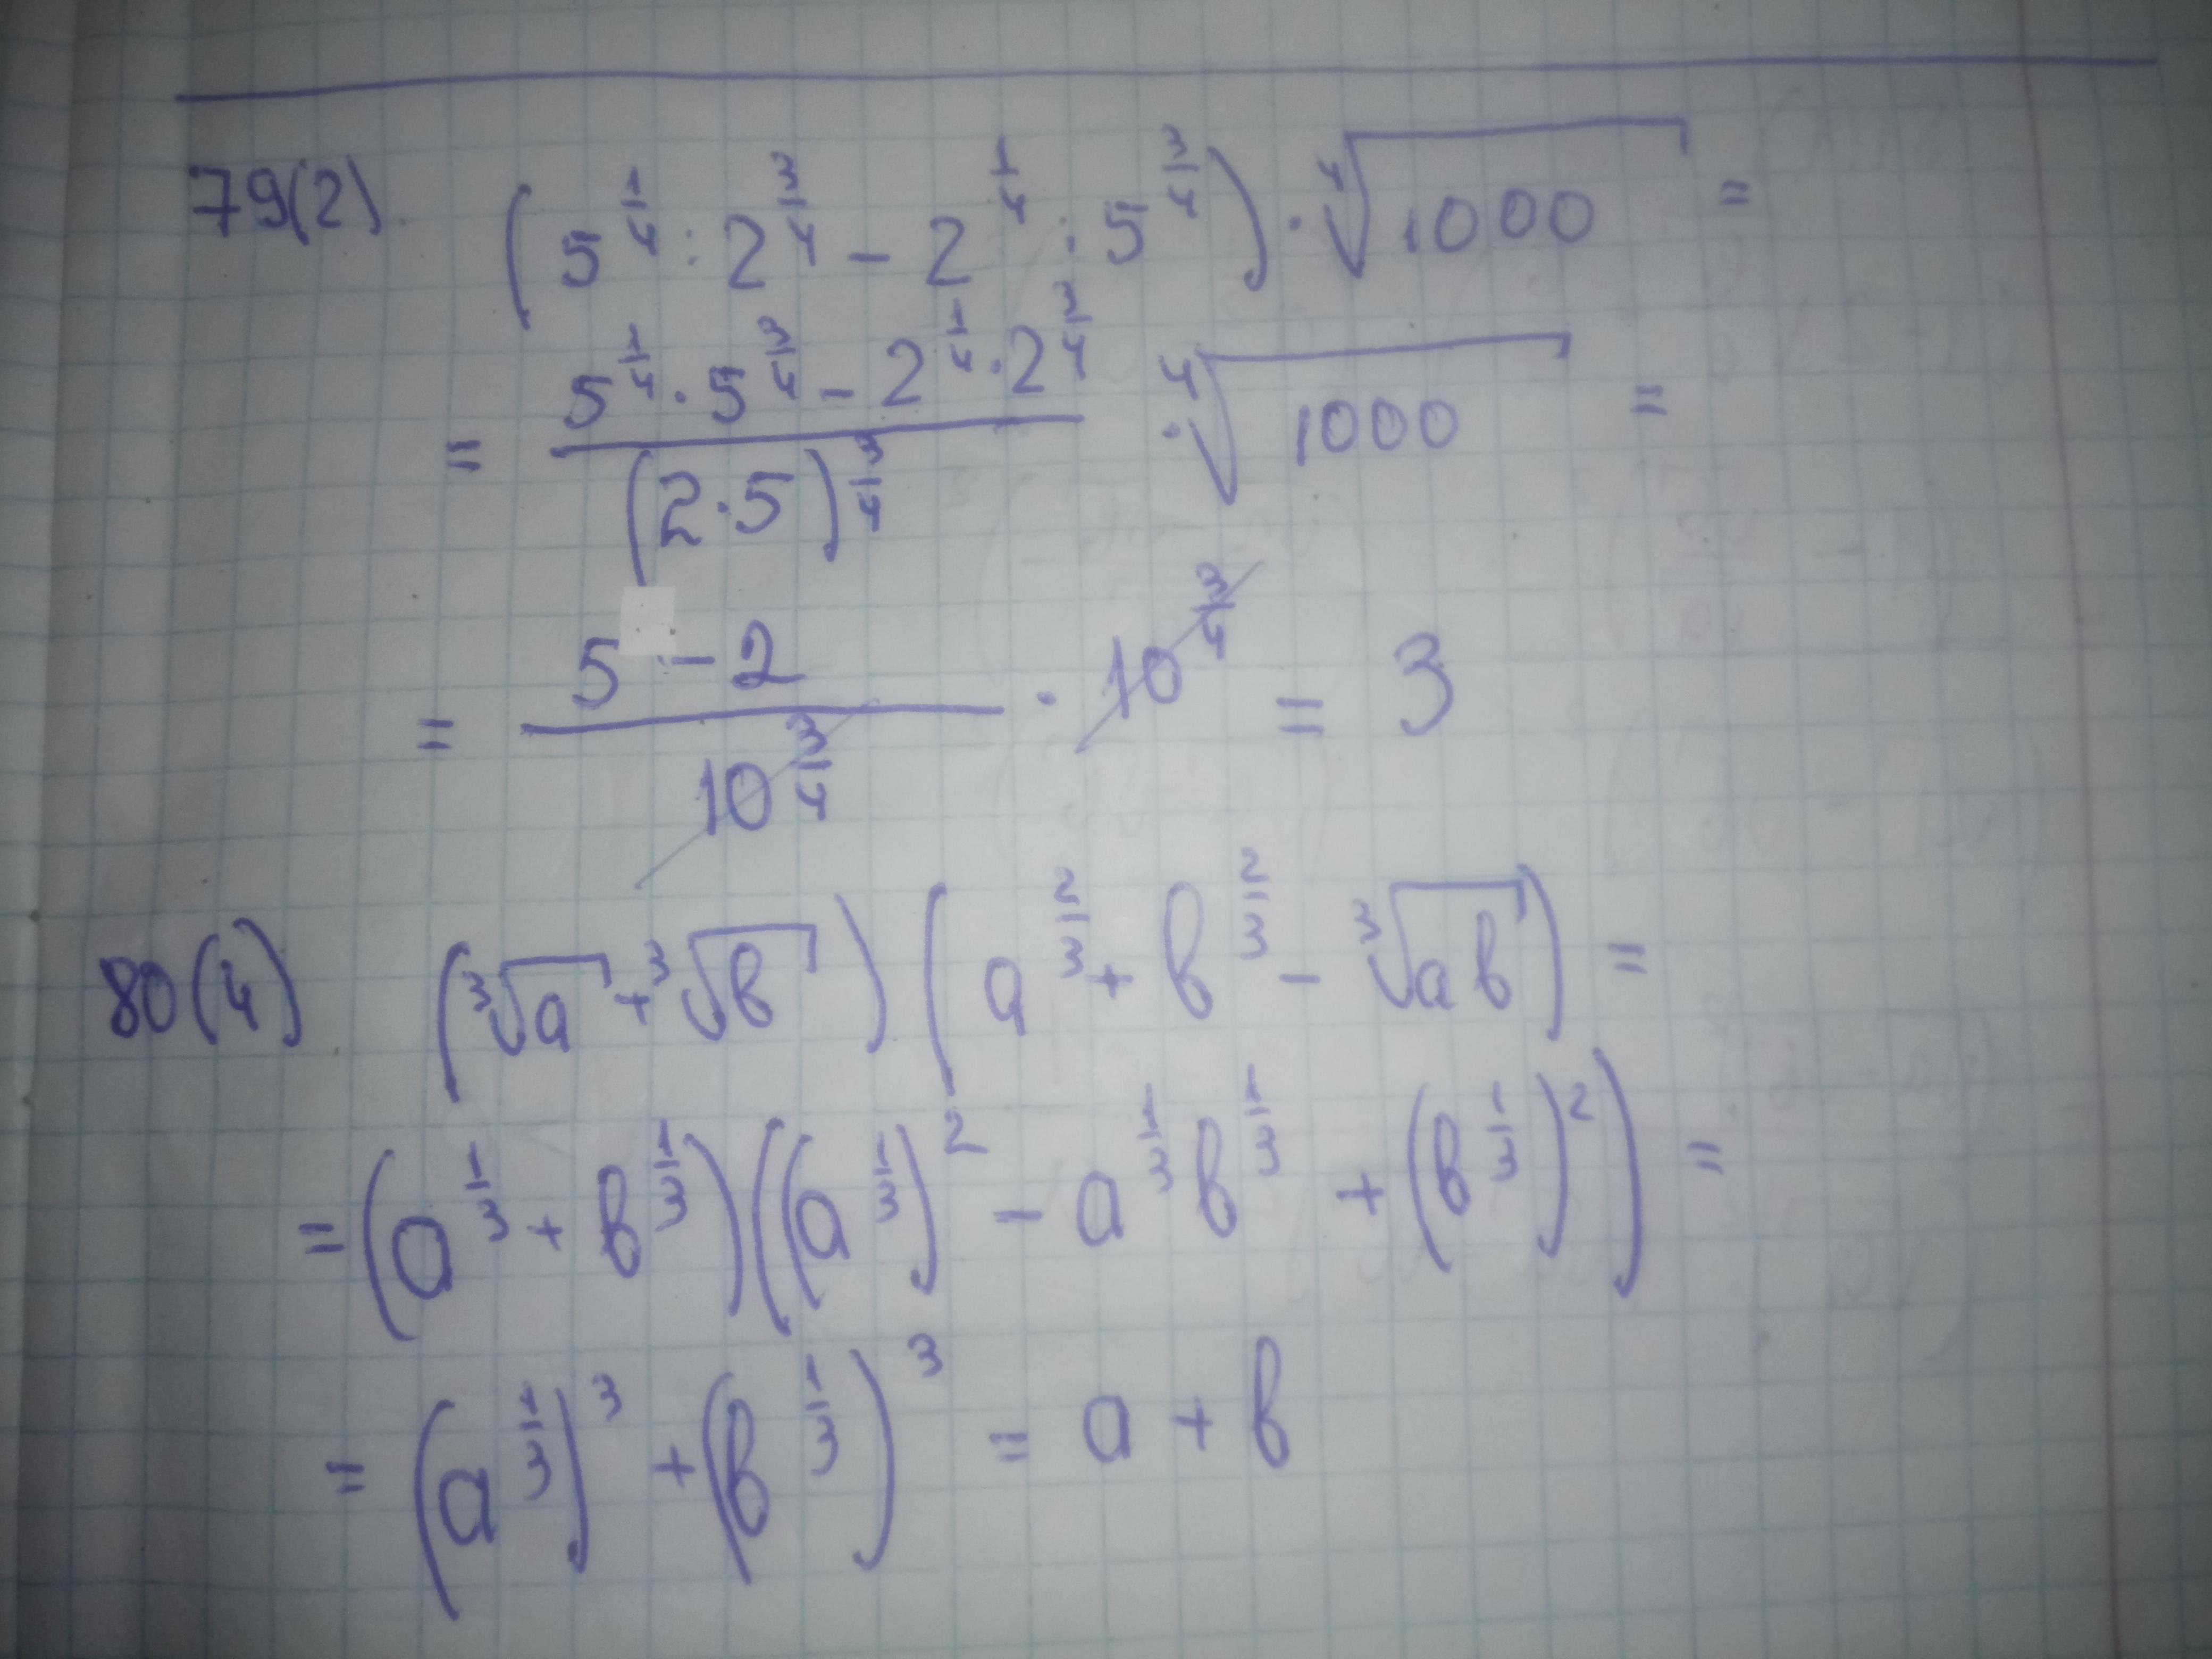 79(2). (5^{1/4} : 2^{3/4} - 2^{1/4} : 5^{3/4}) · ∜1000 =
= \frac{5^{1/4} · 5^{3/4} - 2^{1/4} · 2^{3/4}}{(2·5)^{3/4}} · ∜1000 =
= \frac{5 - 2}{10^{3/4}} · 10^{3/4} = 3
80(4) (∛a + ∛в)(a^{2/3} + в^{2/3} - ∛aв) =
= (a^{1/3} + в^{1/3})((a^{1/3})^2 - a^{1/3}в^{1/3} + (в^{1/3})^2) =
= (a^{1/3})^3 + (в^{1/3})^3 = a + в